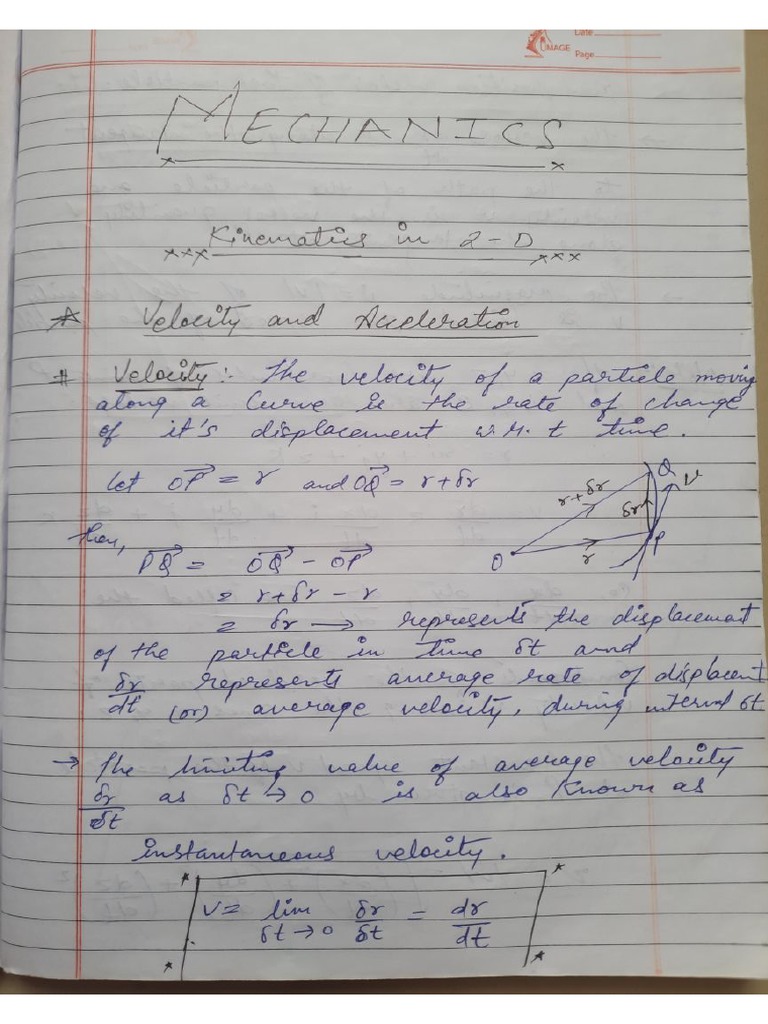 Date
IMAGE Page
MECHANICS
Kinematics in 2-D
Velocity and Acceleration
# Velocity :- The velocity of a particle moving
along a Curve is the rate of change
of it's displacement w.r.t time.
let OP = r and OQ = r+δr
then,
PQ = OQ - OP
= r+δr - r
= δr → represents the displacement
of the particle in time δt and
δr/dt represents average rate of displacent
(or) average velocity, during interval δt
→ The limiting value of average velocity
δr/δt as δt → 0 is also Known as
instantaneous velocity.
V = lim δt→0 δr/δt = dr/dt
r+δr
δr
Q
P
O
r